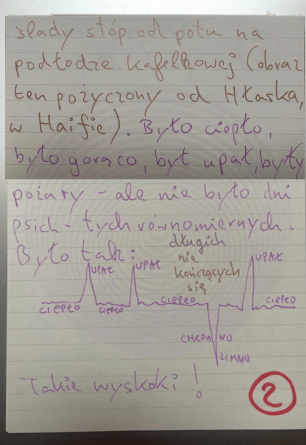 ślady stóp od potu na
podłodze kafelkowej (obraz
ten pożyczony od Hłaska,
w Haifie). Było ciepło,
było gorąco, był upał, były
pożary – ale nie było dni
psich – tych równomiernych.
długich
nie
kończących
się
Było tak:
UPAŁ UPAŁ UPAŁ
CIEPŁO CIEPŁO CIEPŁO CIEPŁO
CHŁODNO
ZIMNO
Takie wyskoki!
2